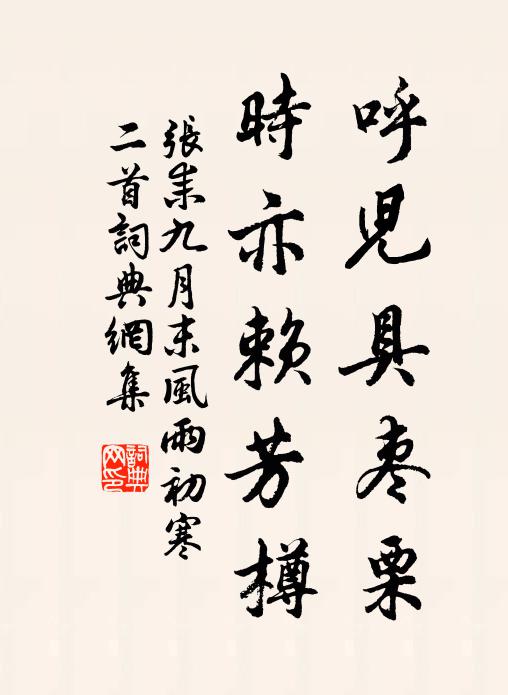 呼児具枣栗
時亦赖芳樽
張耒九月末風雨初寒
二首詞典網集
詞典网印